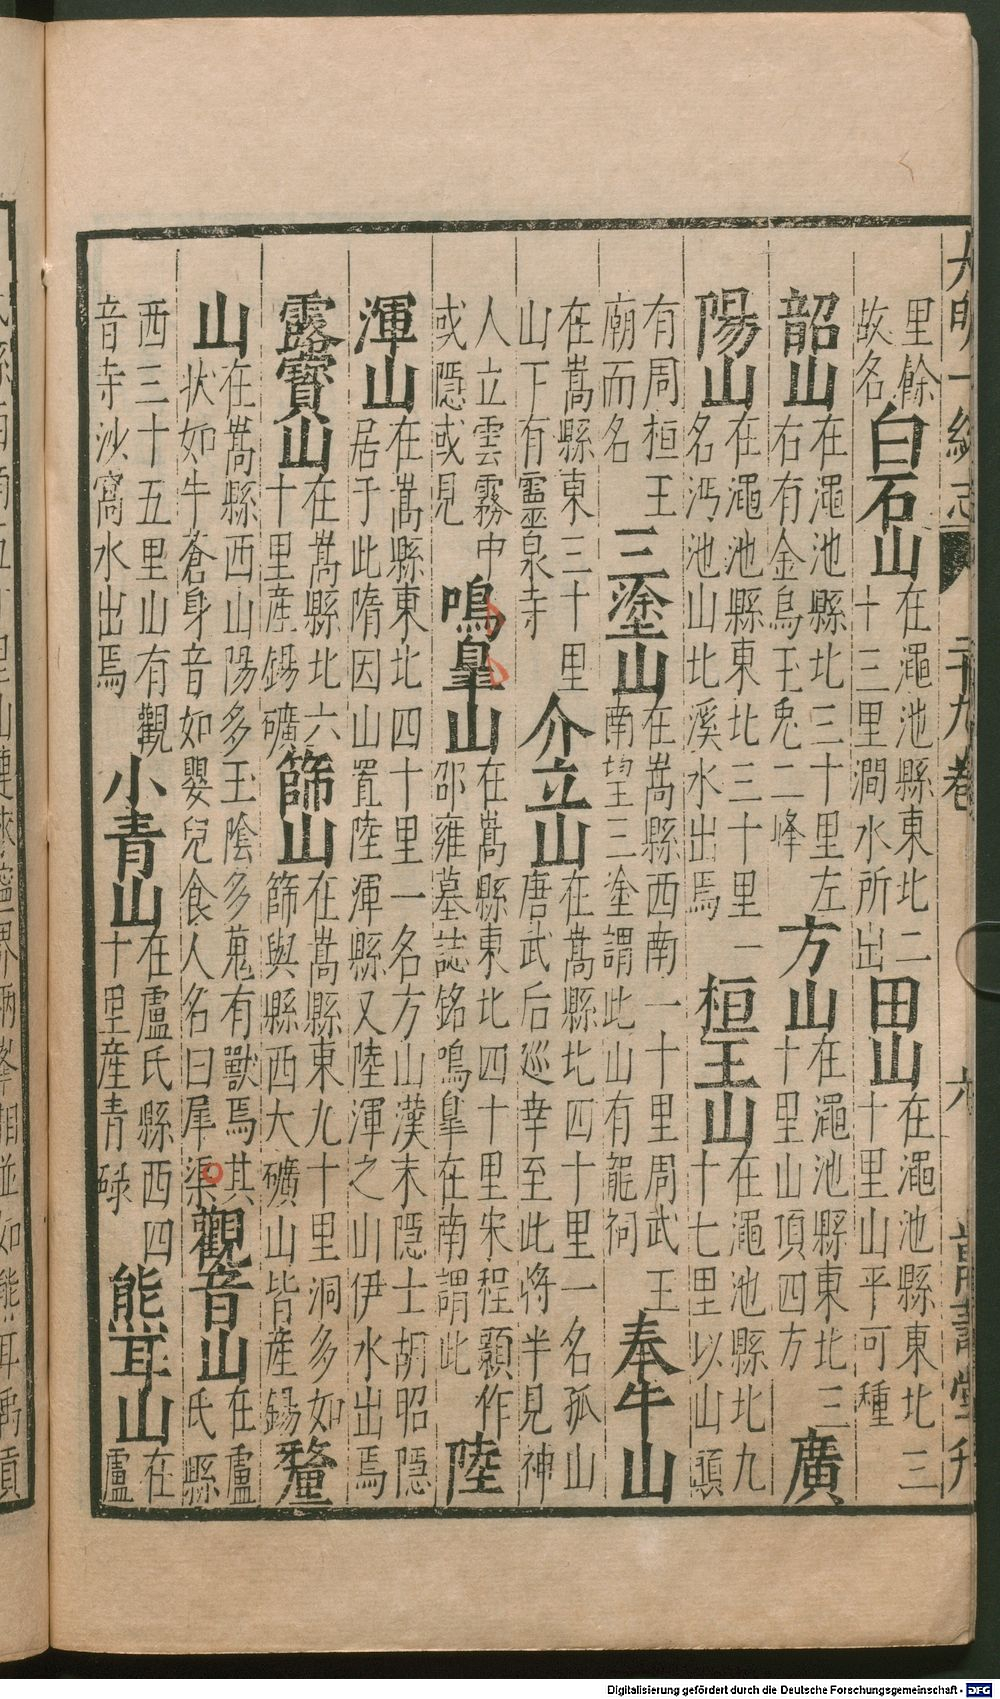 里餘
故名
白石山
在澠池縣東北二
十三里澗水所出
田山
在澠池縣東北三
十里山平可種
韶山
在澠池縣北三十里左
右有金烏玉兔二峰
方山
在澠池縣東北三
十里山頂四方
廣
陽山
在澠池縣東北三十里一
名沔池山北溪水出焉
桓王山
在澠池縣北九
十七里以山頭
有周桓王
廟而名
三塗山
在嵩縣西南一十里周武王
南望三塗謂此山有龍祠
奉牛山
在嵩縣東三十里
山下有靈泉寺
介立山
在嵩縣北四十里一名孤山
唐武后巡幸至此將半見神
人立雲霧中
或隱或見
鳴臯山
在嵩縣東北四十里宋程顥作
邵雍墓誌銘鳴臯在南謂此
陸
渾山
在嵩縣東北四十里一名方山漢末隱士胡昭隱
居于此隋因山置陸渾縣又陸渾之山伊水出焉
露寶山
在嵩縣北六
十里產錫礦
篩山
在嵩縣東九十里洞多如
篩與縣西大礦山皆產錫
釐
山
在嵩縣西山陽多玉陰多蒐有獸焉其
狀如牛蒼身音如嬰兒食人名曰犀渠
觀音山
在盧
氏縣
西三十五里山有觀
音寺沙窩水出焉
小青山
在盧氏縣西四
十里產青碌
熊耳山
在
盧
大明一統志
二十九卷
六
Digitalisierung gefördert durch die Deutsche Forschungsgemeinschaft - DFG